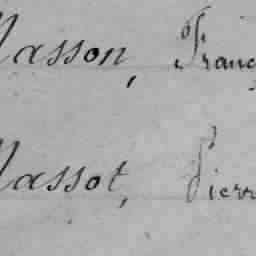 Masson, Franç
Massot, Pierr